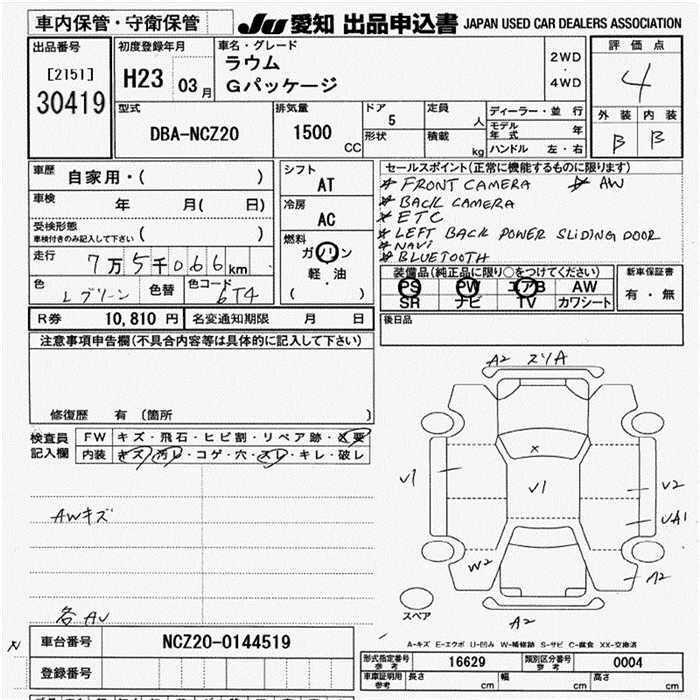 車内保管・守衛保管
JU 愛知 出品申込書 JAPAN USED CAR DEALERS ASSOCIATION
出品番号
[2151]
30419
初度登録年月
H23 03月
車名・グレード
ラウム
Gパッケージ
2WD
・
4WD
評価点
4
外装 内装
B B
型式
DBA-NCZ20
排気量
1500 CC
ドア 5
形状
定員 人
積載 kg
ディーラー・並行
モデル年式 年
ハンドル 左・右
車歴 自家用・( )
車検 年 月( 日)
受検形態
車検付きのみ記入して下さい ( )
走行 7万5千066km
色 Lグリーン 色替 色コード 6T4
シフト
AT
冷房
AC
燃料
ガソリン
軽・油
( )
セールスポイント(正常に機能するものに限ります)
* FRONT CAMERA * AW
* BACK CAMERA
* ETC
* LEFT BACK POWER SLIDING DOOR
* NAVI
* BLUETOOTH
装備品(純正品に限り○をつけてください)
PS PW エアB AW
SR ナビ TV カワシート
新車保証書
有・無
R券 10,810円 名変通知期限 月 日
後日品
注意事項申告欄(不具合内容等は具体的に記入して下さい)
修復歴 有 〔箇所 〕
検査員
記入欄
FW キズ・飛石・ヒビ割・リペア跡・交要
内装 キズ・汚レ・コゲ・穴・スレ・キレ・破レ
AWキズ
A2 スリA
X
V1
V1
V2
UA1
W2
A2
スペア
A2
A-キズ E-エクボ U-凹み W-補修跡 S-サビ C-腐食 XX-交換済
車台番号 NCZ20-0144519
登録番号
形式指定番号
参考
16629
類別区分番号
参考
0004
車庫証明用
参考
長さ cm
幅 cm
高さ cm